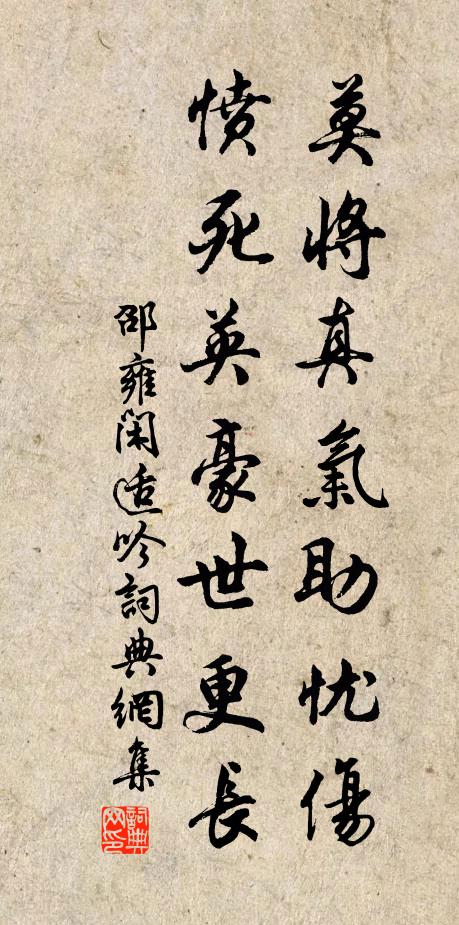 莫將真氣助忧傷
憤死英豪世更長
邵雍閑适吟詞典網集
詞典網印